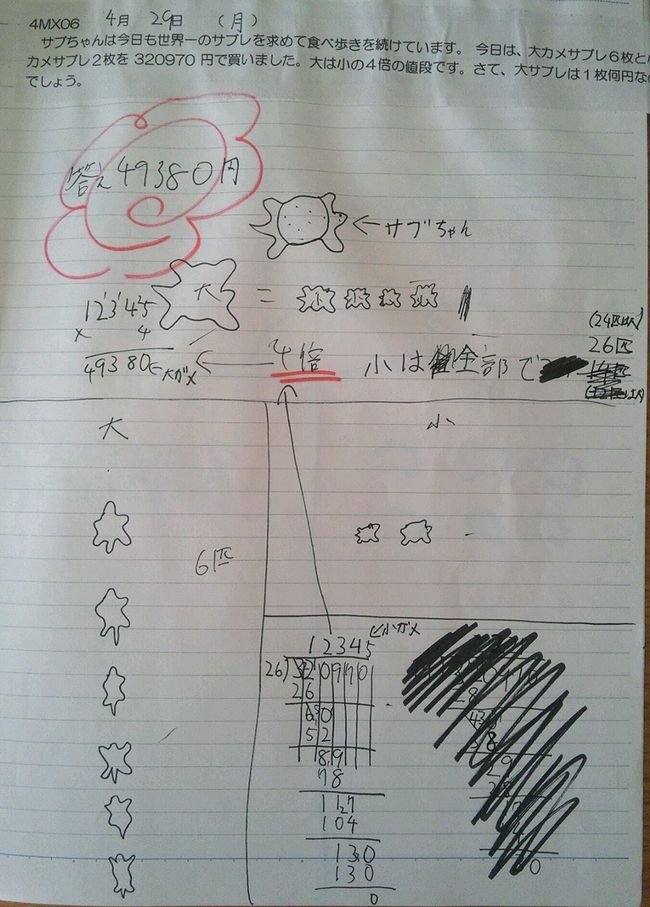 4MX06 4月 29日 (月)
サブちゃんは今日も世界一のサブレを求めて食べ歩きを続けています。 今日は、大カメサブレ6枚と
カメサブレ2枚を 320970 円で買いました。大は小の4倍の値段です。さて、大サブレは1枚何円な
でしょう。
答え 49380円
←サブちゃん
大 =
12345
× 4
49380 ←大ガメ ← 4倍
小は全部で 26匹
大
小
6匹
12345 ←小ガメ
26)320970
26
60
52
89
78
117
104
130
130
0